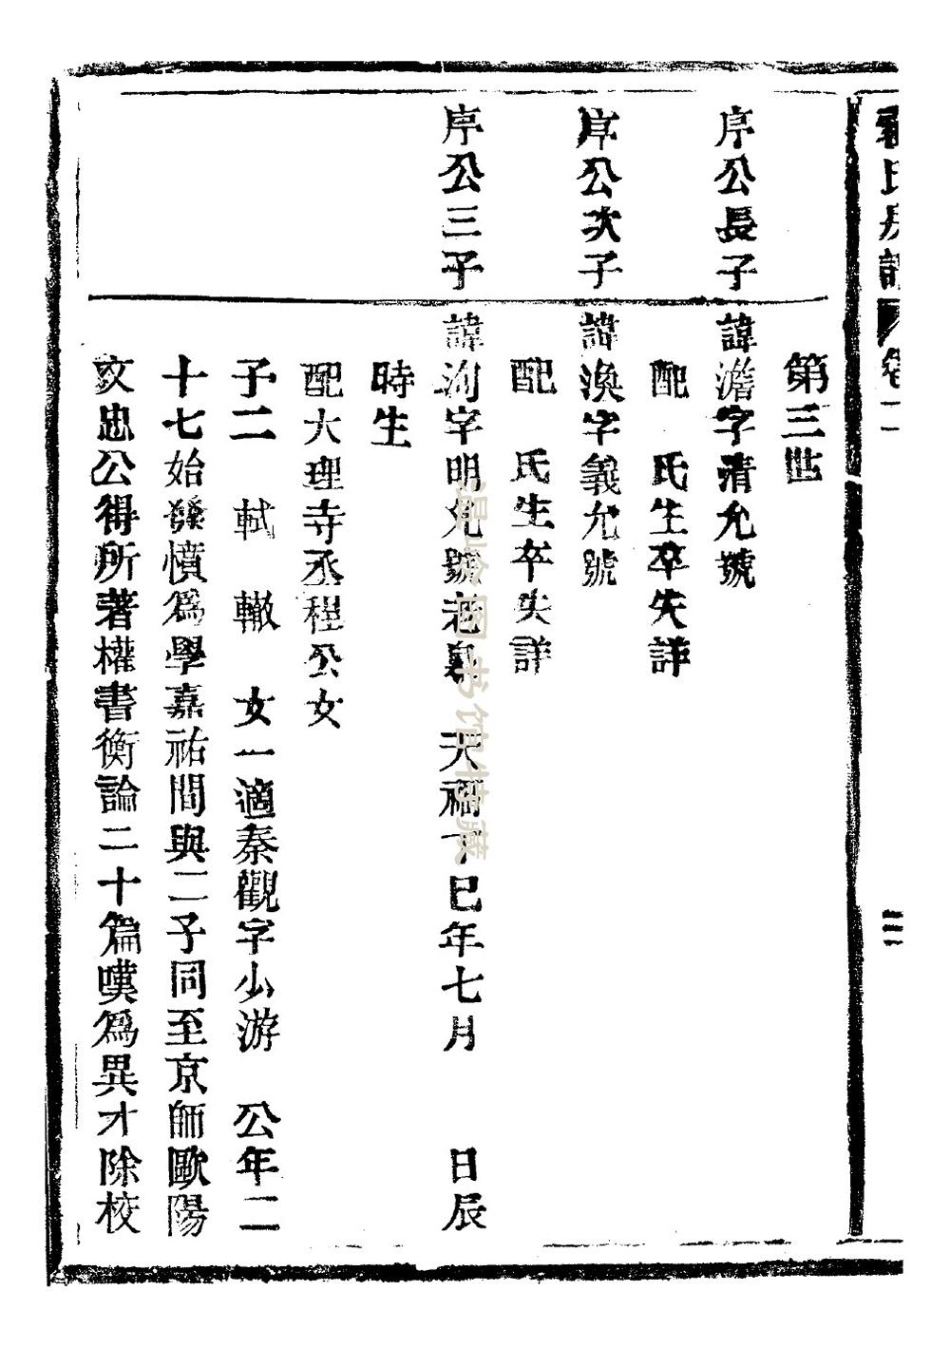 氏
卷二
三
第三世
序公長子
諱澹字清允號
配　氏生卒失詳
序公次子
諱渙字義允號
配　氏生卒失詳
序公三子
諱洵字明允號老泉　天禧丁巳年七月　日辰
時生
配大理寺丞程公女
子二　軾　轍　女一適秦觀字少游　公年二
十七始發憤爲學嘉祐間與二子同至京師歐陽
文忠公得所著權書衡論二十篇嘆爲異才除校